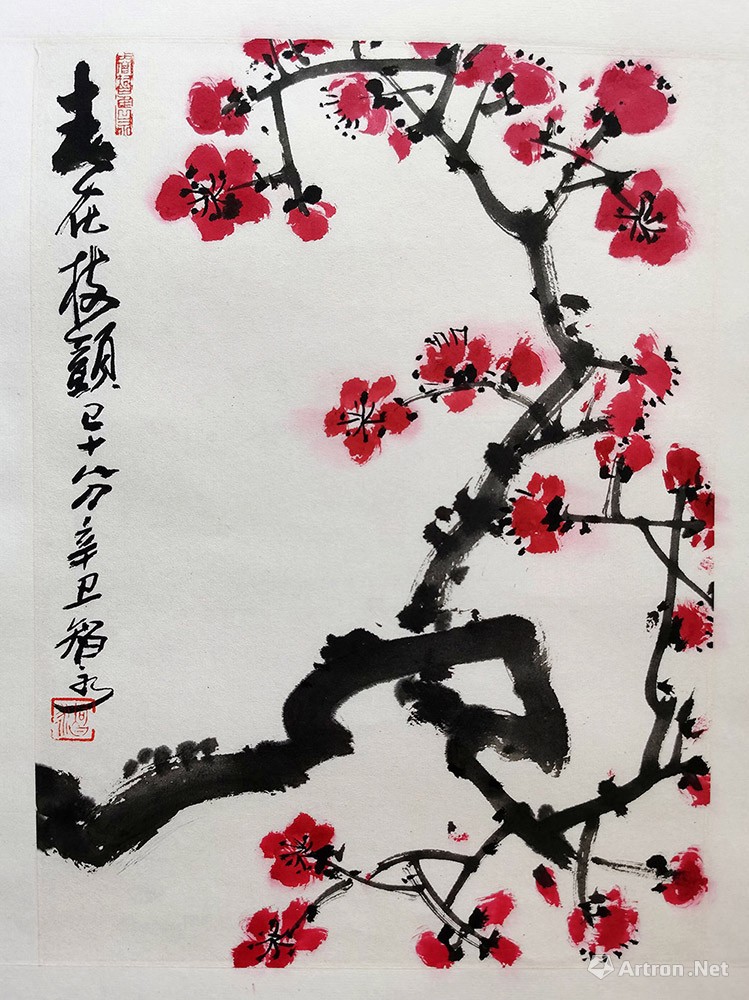 春在枝頭已十分辛丑智永
Artron.Net